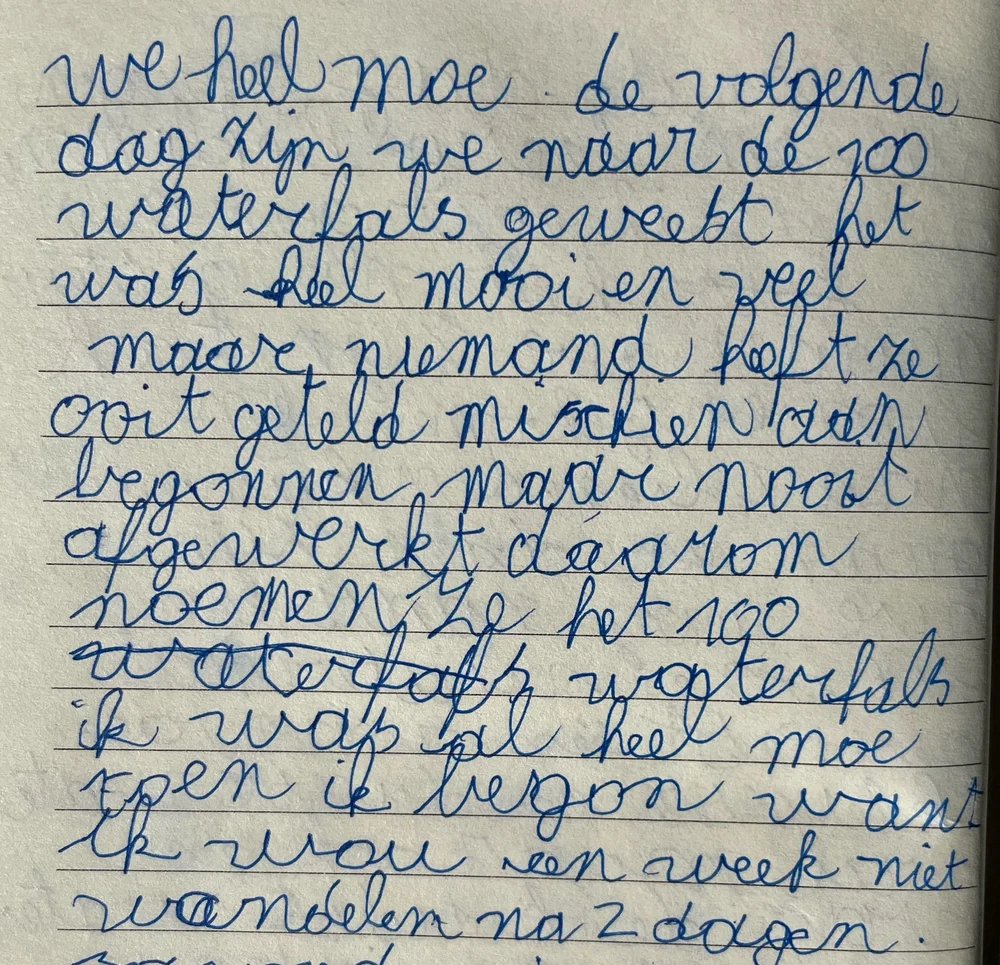 we heel moe. de volgende
dag zijn we naar de 100
waterfals geweest het
was heel mooi en veel
maar niemand heeft ze
ooit geteld mischien aan
begonnen maar nooit
afgewerkt daarom
noemen ze het 100
waterfals waterfals
ik was al heel moe
toen ik begon want
ik wou een week niet
wandelen na 2 dagen.